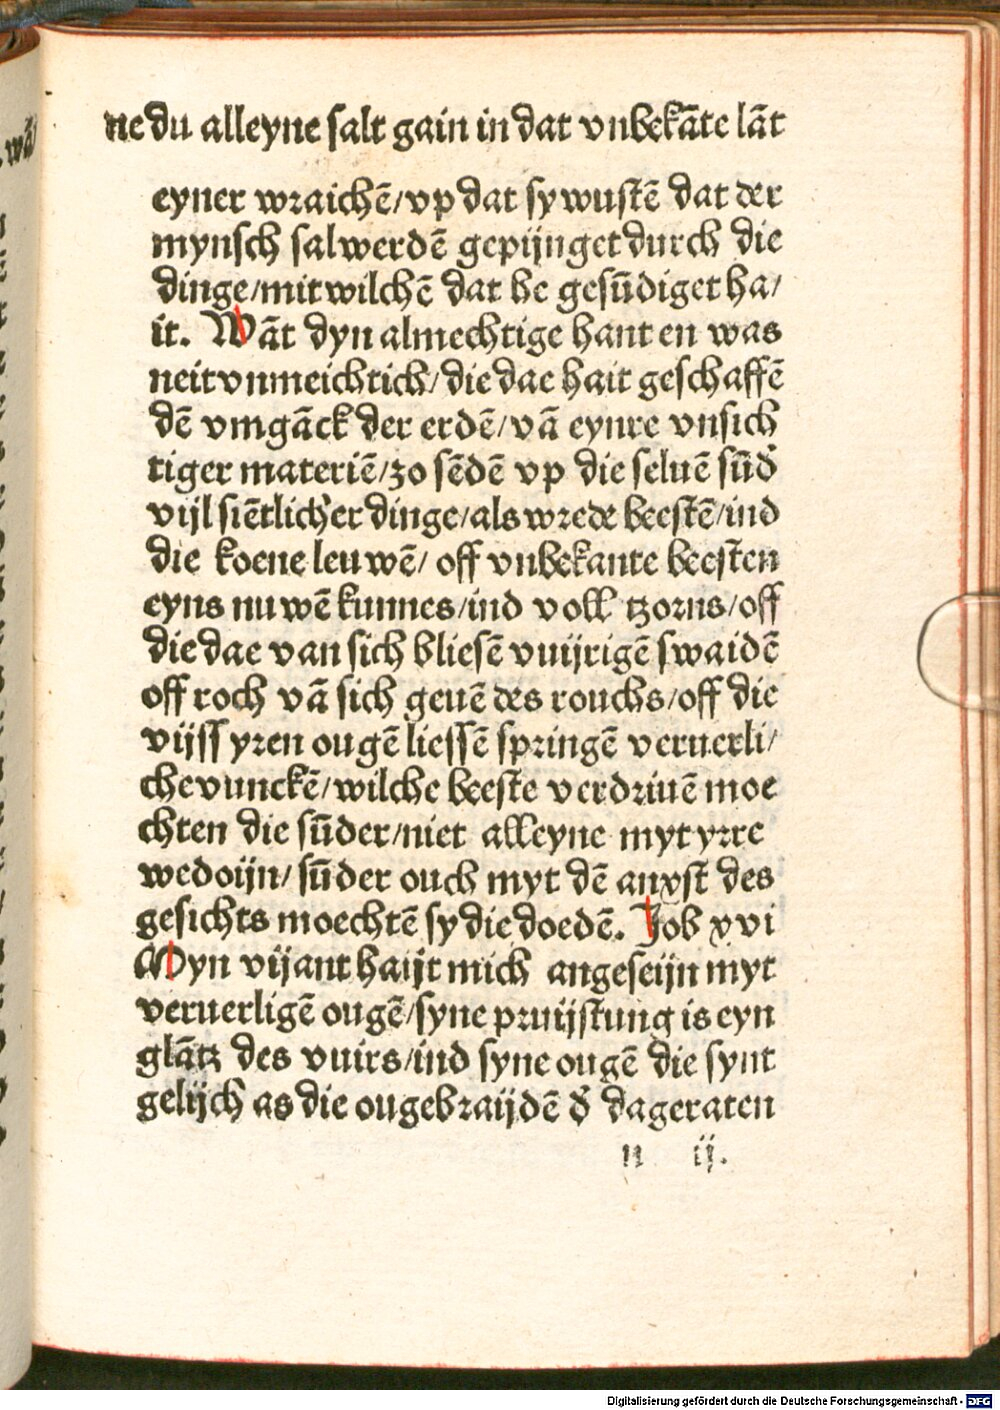 ne du alleyne salt gain in dat vnbekāte lāt
eyner wraichē/vp dat sy wustē dat der
mynsch sal werdē gepijnget durch die
dinge/mit wilchē dat he gesūdiget ha/
it. Wāt dyn almechtige hant en was
neit vnmeichtich/die dae hait geschaffē
dē vmgāck der erdē/vā eynre vnsich
tiger materiē/zo sēdē vp die seluē sūd̄
vijl siētlicher dinge/als wrede beestē/ind
die koene leuwē/off vnbekante beesten
eyns nuwē kunnes/ind voll tzorns/off
die dae van sich bliesē vuijrigē swaidē
off roch vā sich geuē des rouchs/off die
vijss yren ougē liessē springē veruerli/
che vunckē/wilche beeste verdriuē moe
chten die sūder/niet alleyne myt yrre
wedoijn/sūder ouch myt dē anxst des
gesichts moechtē sy die doedē. Job xvi
Myn vijant haijt mich angeseijn myt
veruerligē ougē/syne pruijstung is eyn
glātz des vuirs/ind syne ougē die synt
gelijch as die ougebraijdē d̄ dageraten
n ij.
Digitalisierung gefördert durch die Deutsche Forschungsgemeinschaft - DFG